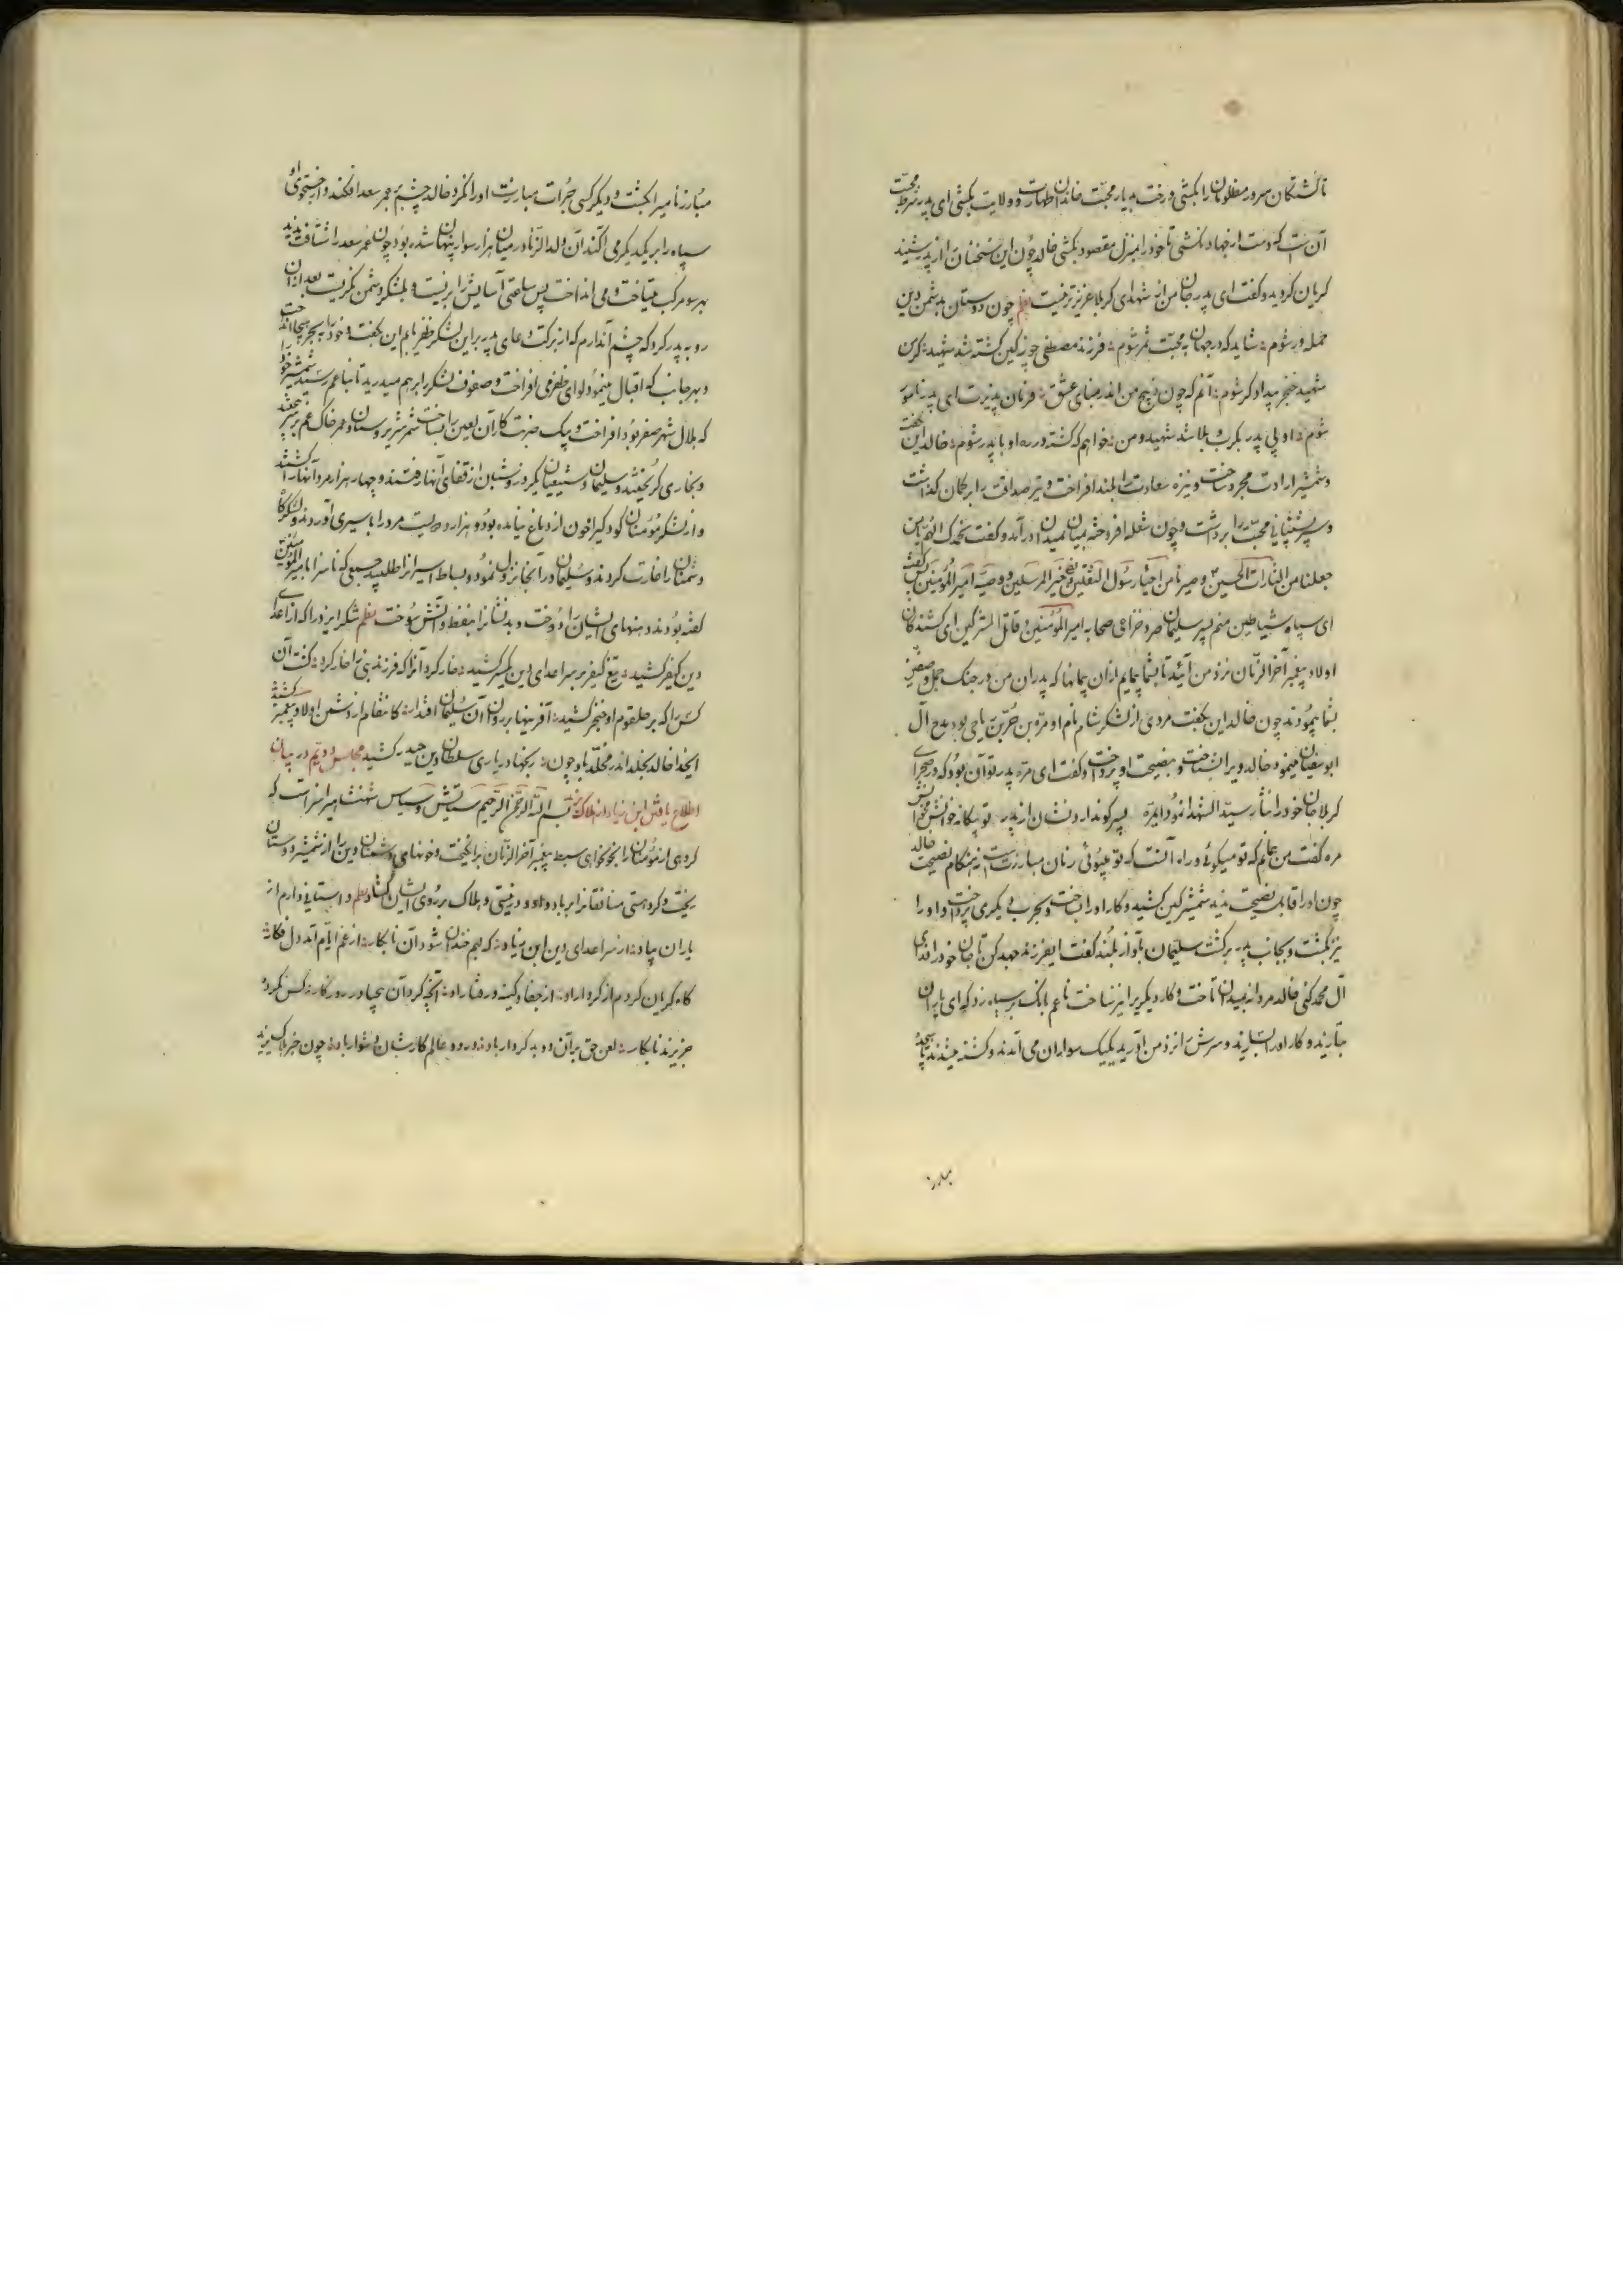 تا کشتکان سرور مظلومان را بکشی و رخت بدیار محبت خاندان طهارت و ولایت بکشی ای پدر شرط محبت
آن نیست که دست از جهاد بکشی تا خود را بمنزل مقصود بکشی خالد چون این سخنان از پدر شنید
کریان کردید و کفت ای پدر جان من از شهدای کربلا عزیزتر نیست نظم چون دوستان بدشمن دین
حمله ور شوم شاید که در جهان به محبت ثمر شوم فرزند مصطفی چو ز کین کشته شد شهید
شهید خنجر بیداد کر شوم آنم که چون ذبیح من اندر منای عشق فرمان پذیرت ای پدر نامور
شوم او پی پدر بکرب و بلا شد شهید و من خواهم که کشته در ره او با پدر شوم خالد این بکفت
و شمشیر ارادت مجرد ساخت و نیزه سعادت را بلند افراخت و تیر صداقت را بر کمان کذاشت
و سپر پشتیبانی محبت را برداشت و چون شعله افروخته بمیان میدان درآمد و کفت نحمدک اللهم بان
جعلنا من الثارات الحسین و صیرنا من احباء رسول الثقلین خیر المرسلین و وصیه امیر المؤمنین پس کفت
ای سپاه شیاطین منم پسر سلیمان صرد خزاعی صحابه امیر المؤمنین و قاتل المشرکین ای کشندکان
اولاد پیغمبر آخر الزمان نزد من آئید تا بشما بپیمایم از ان پیمانها که پدران من در جنک جمل و صفین
بشما پیمودند چون خالد این بکفت مردی از لشکر شام نام او مرة بن حر بن ریاحی بود مدح آل
ابو سفیان مینمود خالد ویرا شناخت و بنصیحت او پرداخت و کفت ای مره پدر تو آن بود که در صحرای
کربلا جان خود را نثار سید الشهدا نمود ای مره پسر کو ندارد نشان از پدر تو بیکانه خوانش مخوانش پسر
مره کفت من میدانم که تو میکوئی و راه آنست که تو میپوئی زمان مبارزت است نه هنکام نصیحت خالد
چون او را قابل نصیحت ندید شمشیر کین کشید و کار او را بساخت و بحرب دیکری پرداخت و او را
نیز بکشت و بجانب پدر برکشت سلیمان بآواز بلند کفت ایفرزند جهد کن تا جان خود را فدای
آل محمد کنی خالد مردانه بمیدان تاخت و کار دیکریرا نیز ساخت ناعم بانک بر سپاه زد که ای یاران
بتازید و کار او را بسازید و سرش را نزد من آورید یکیک سواران می آمدند و کشته میشدند تا پنجاه
مبارز
مبارز نامیرا بکشت و دیکر کسی جرات مبارزت او را نکرد خالد چشم بر عمر سعد افکند و از جستجوی او
سپاه را بر یکدیکر می آکند آن ولد الزنا در میان هزار سوار پنهان شده بود چون عمر سعد را نشناخت ندید
بهر سو مرکب میتاخت و می انداخت پس ساعتی آسایش را بزیست و بلشکر دشمن نکریست بعد از ان
رو به پدر کرد که چشم آندارم که از برکت دعای پدر بر این لشکر ظفر یابم این بکفت و خود را ببحر هیجا انداخت
و بهر جانب که اقبال مینمود لوای ظفر می افراخت و صفوف لشکر را برهم میدرید تا بناعم رسید شمشیر خود را
که بلال شهر صفر بود افراخت و بیک ضربت کار آن لعین را بساخت شمر شریر و سنان و عمر خاک غم بر سر بیختند
و بخاری کریختند و سلیمان و شیعیان یکروز و شبان از قفای آنها رفتند و چهار هزار مرد آنها را کشتند
و از لشکر مؤمنان کودکیرا خون از دماغ نیامده بود و هزار و دویست مرد را باسیری آوردند و لشکرکاه
دشمنان را غارت کردند و سلیمان در آنجا نزول نمود و بساط اسیرانرا طلبید جمعی که ناسزا بامیر المؤمنین
کفته بودند دهنهای ایشان را دوخت و بدنشانرا بنفط و آتش سوخت نظم شکر ایزد را که از اعدای
دین کیفر کشید تیغ کیفر بر سر اعدای دین یکسر کشید خار کرد آنرا که فرزند نبی را خار کرد کشت آن
کس را که بر حلقوم او خنجر کشید آفرینها بر روان آن سلیمان اقتدار کانتقام از دشمن اولاد پیغمبر کشید
ایخدا خالد بخلد اندر مخلد باد چون رنجها در یاری سلطان دین حیدر کشید مجلس دویم در بیان
اطلاع یافتن ابن زیاد از هلاک بسم الله الرحمن الرحیم ستایش و سپاس شهنشاهیرا سزاست که
کروهی از مؤمنانرا بخونخواهی سبط پیغمبر آخر الزمان برانکیخت و خونهای دشمنان دین را از شمشیر دوستان
ریخت و کرد هستی منافقانرا بر باد داد و در نیستی و هلاک بر روی ایشان کشاد نظم داستانی دارم از
یاران بیاد از سر اعدای دین ابن زیاد که بیم خندان شود آن نابکار از غم ایام آمد دل فکار
کاه کریان کردم از کردار او از جفا و کینه و رفتار او آنچه کرد آن بیحیا در روزکار کس نکرد
جز یزید نابکار لعن حق بر آن دو بد کردار باد در دو عالم کارشان دشوار باد چون خبر هلاک یزید